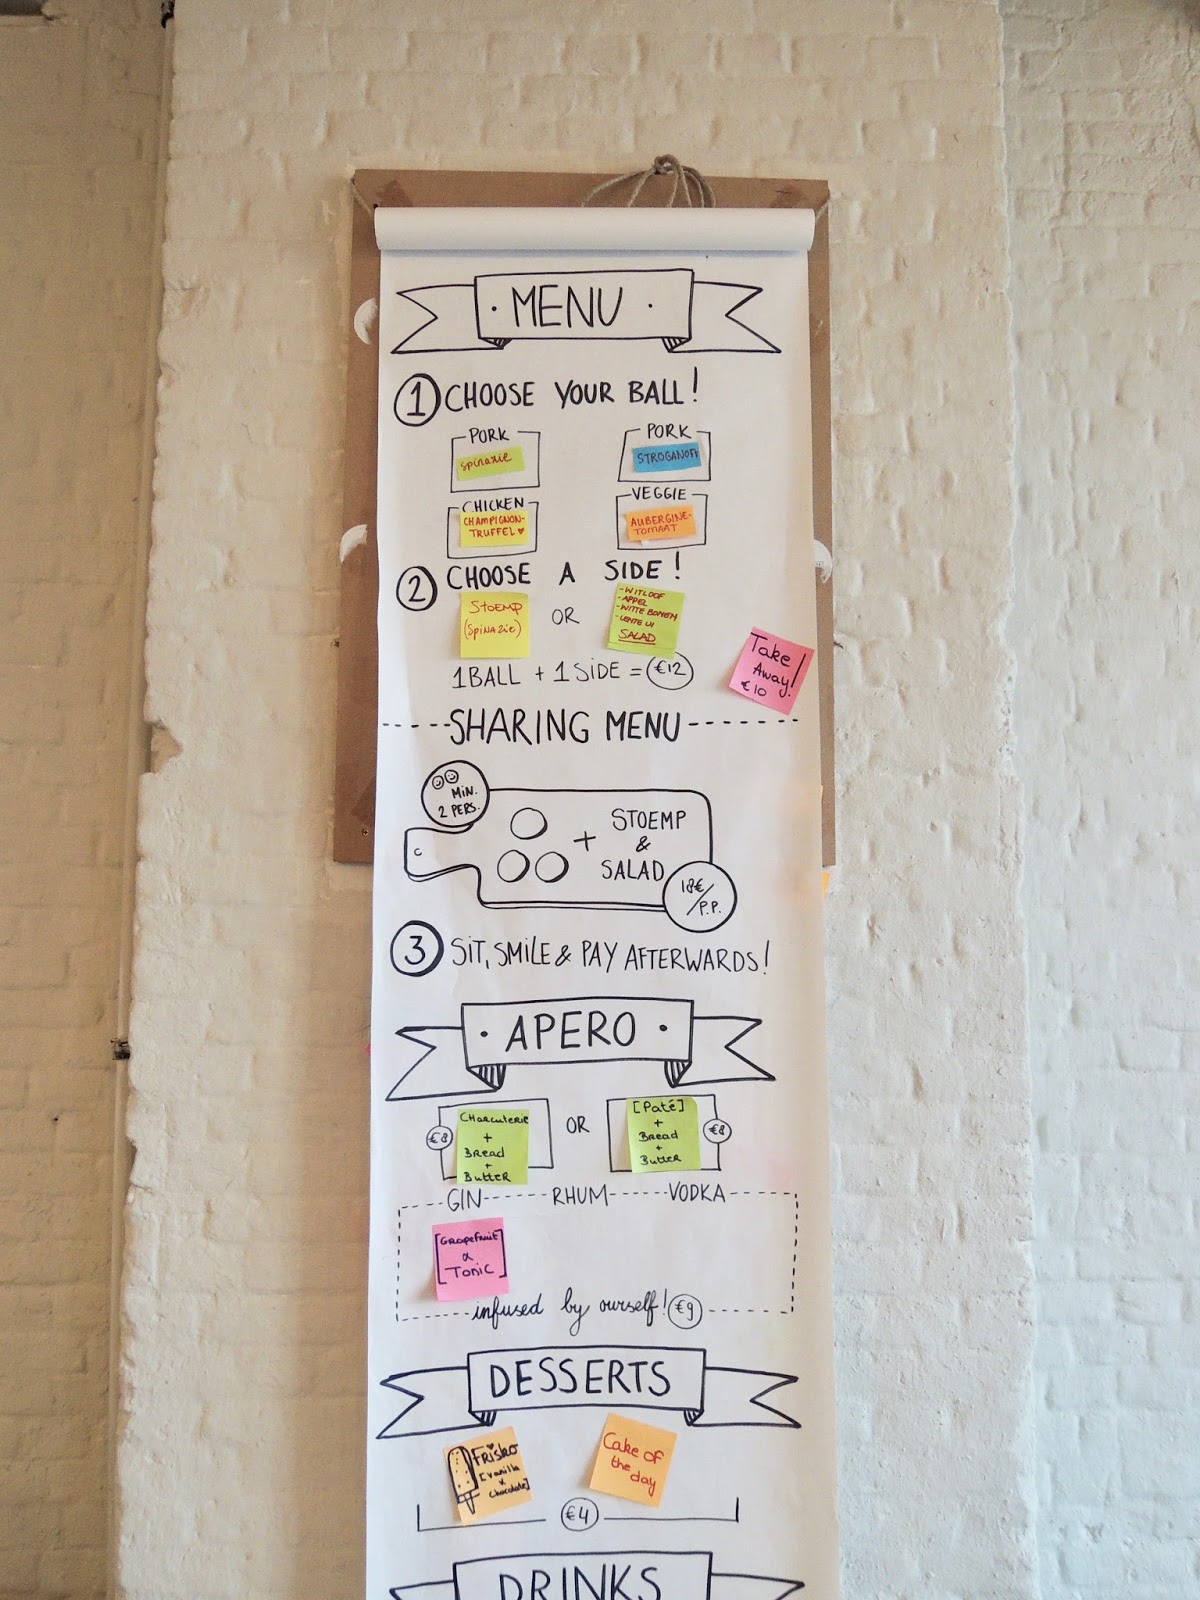 · MENU ·
1 CHOOSE YOUR BALL!
PORK
Spinazie
PORK
STROGANOFF
CHICKEN
CHAMPIGNON-
TRUFFEL ♥
VEGGIE
AUBERGINE-
TOMAAT
2 CHOOSE A SIDE!
STOEMP
(SPINAZIE)
OR
- WITLOOF
- APPEL
- WITTE BONEN
- LENTE UI
SALAD
1 BALL + 1 SIDE = €12
Take
Away!
€10
SHARING MENU
MIN.
2 PERS.
+
STOEMP
&
SALAD
18€/P.P.
3 SIT, SMILE & PAY AFTERWARDS!
· APERO ·
€8
CHARCUTERIE
+
BREAD
+
BUTTER
OR
[Paté]
+
Bread
+
Butter
€8
GIN RHUM VODKA
[GRAPEFRUIT
&
TONIC]
infused by ourself! €9
DESSERTS
FRISKO
[vanilla
&
chocolate]
Cake of
the
day
€4
DRINKS